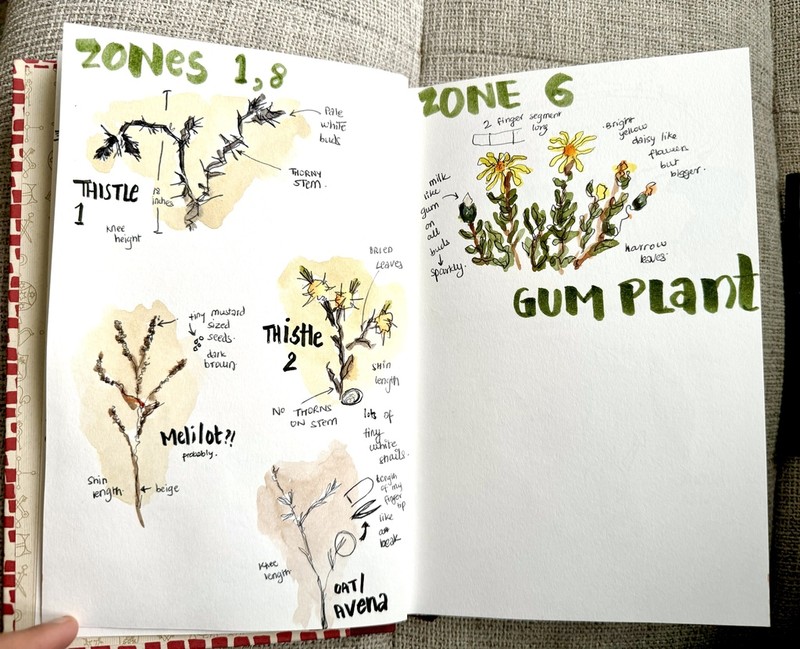 ZONES 1,8
Pale
white
buds
THORNY
STEM.
THISTLE
1
18
inches
Knee
height
DRIED
LEAVES
tiny mustard
sized
seeds.
dark
brown
THistle
2
shin
length
NO THORNS
ON STEM
lots of
tiny
white
snails.
Melilot?!
probably.
Shin
length
beige
length
of my
finger
tip
like
a
beak
Knee
length
OAT/
Avena
ZONE 6
2 finger segment
long
Bright
yellow
daisy like
flowers
but
bigger.
milk
like
gum
on
all
buds
sparkly.
narrow
leaves.
GUM PLant